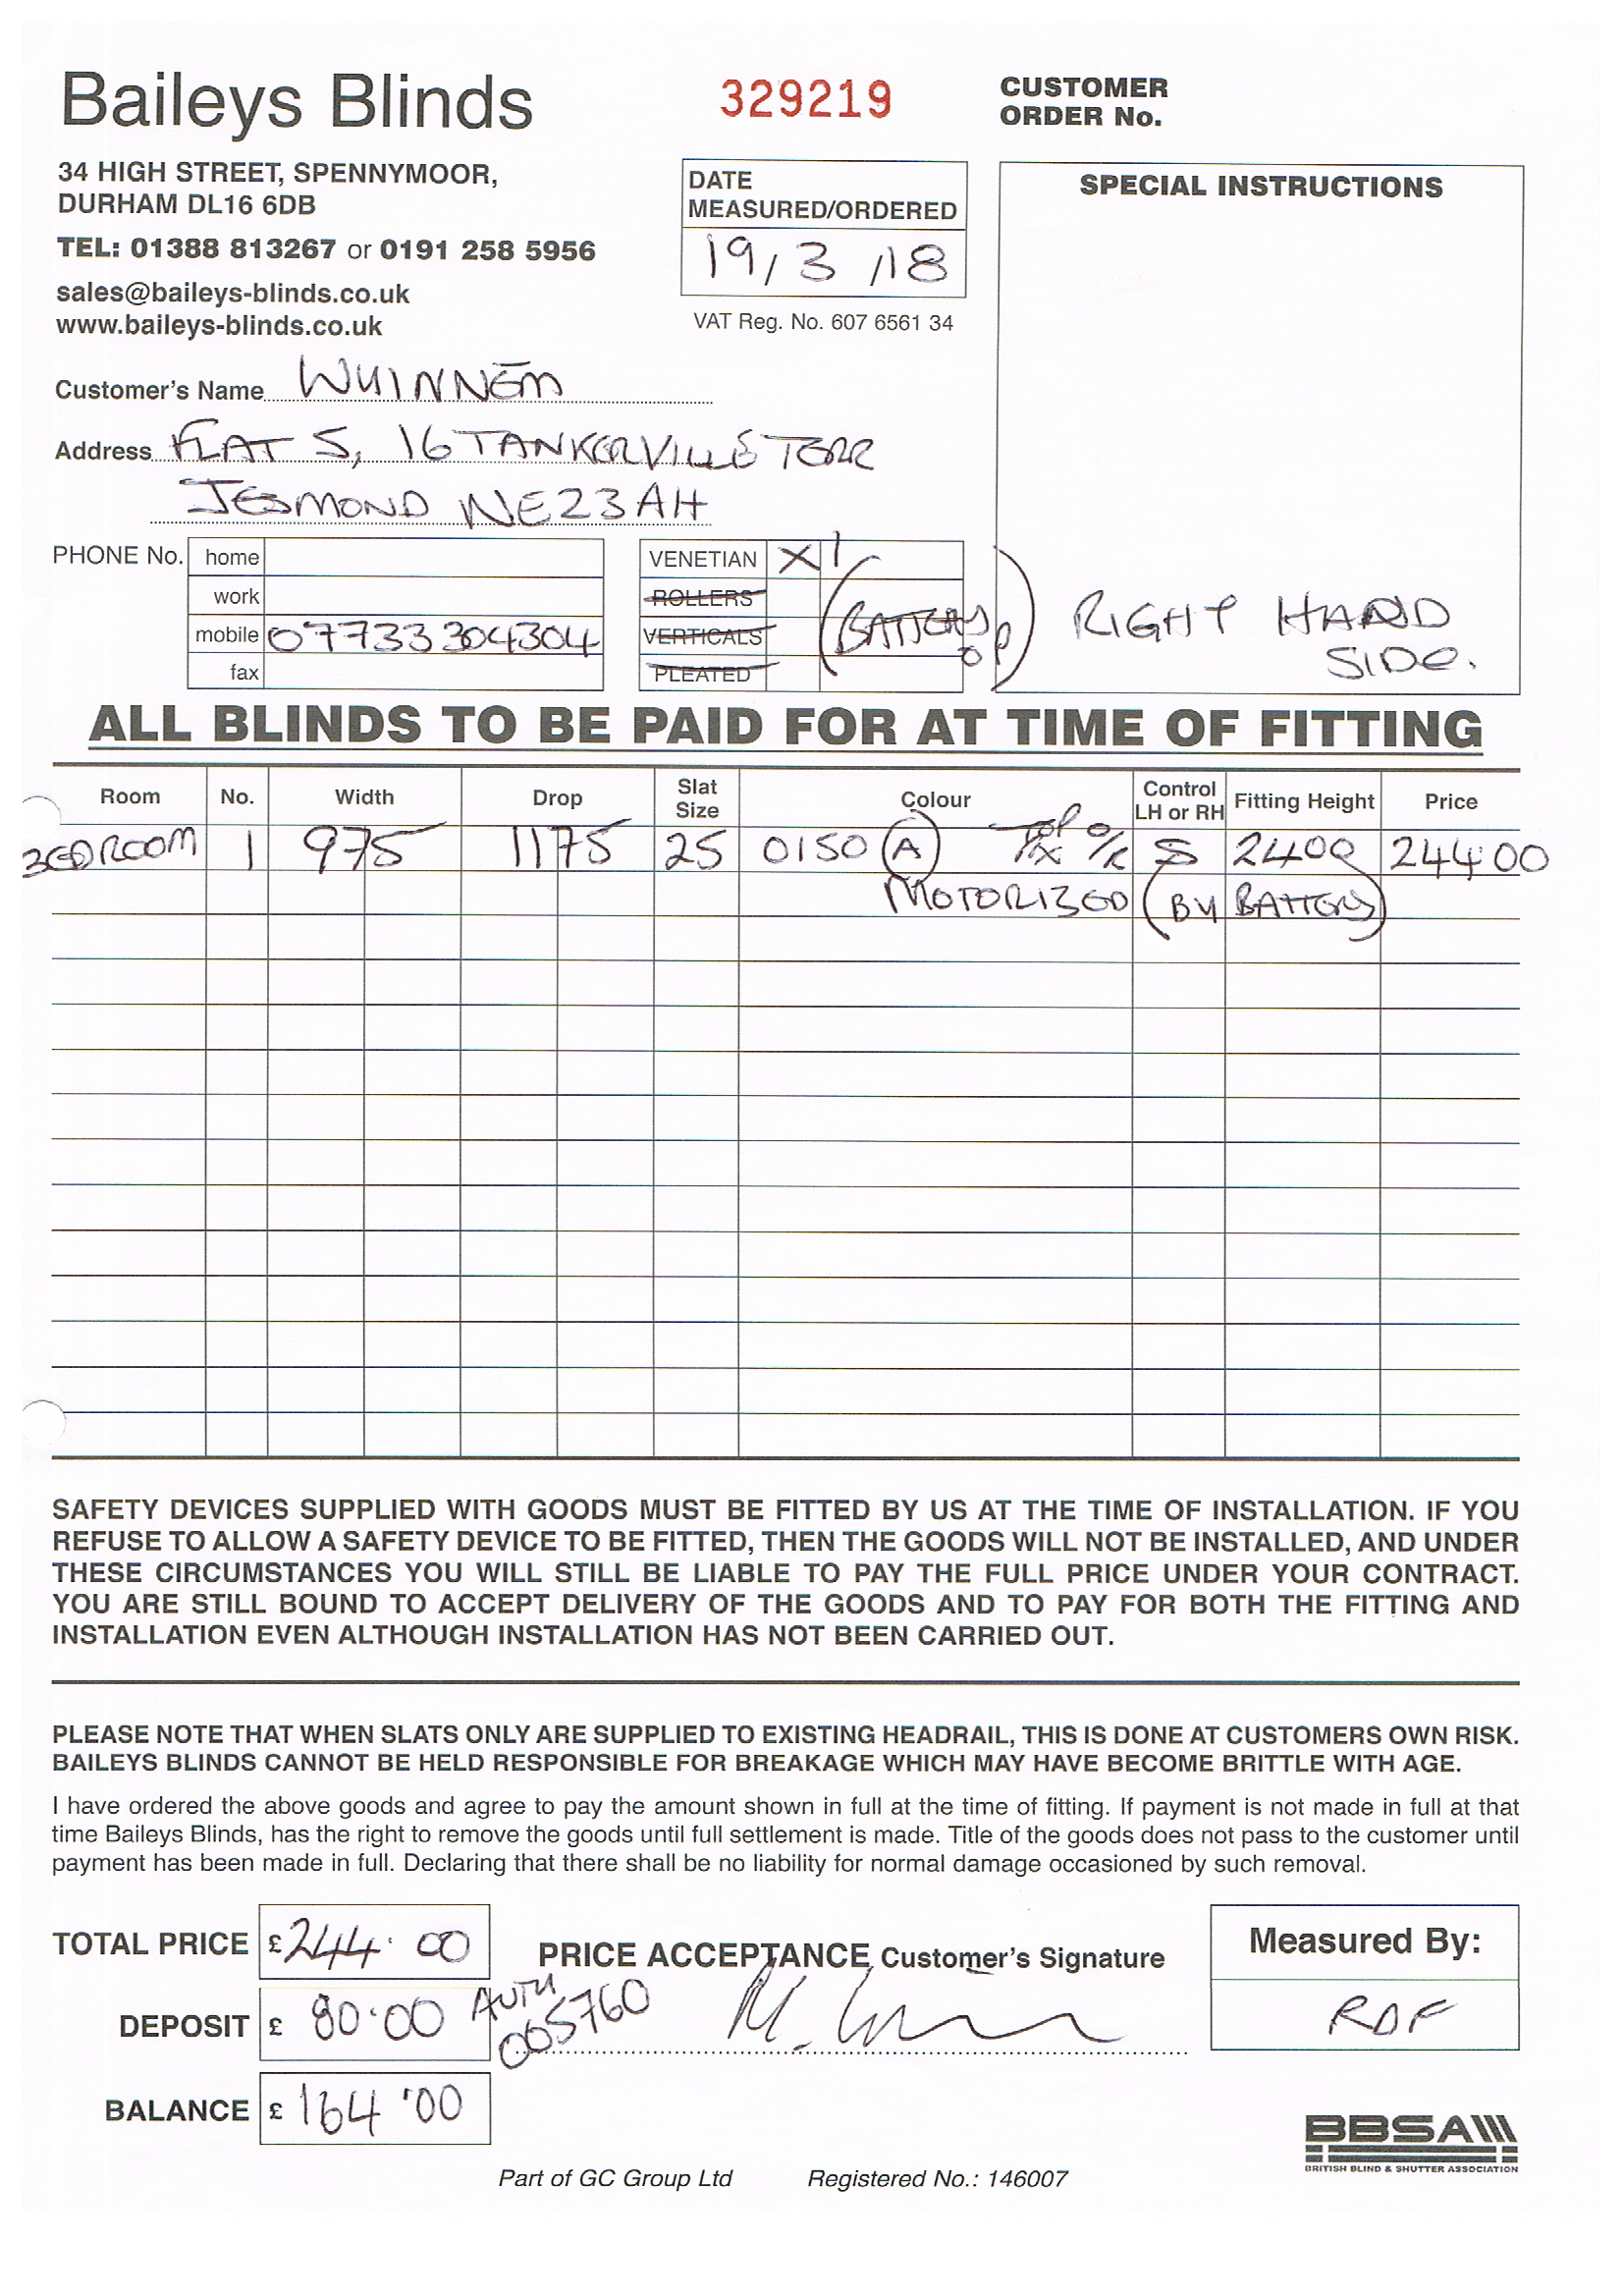 Baileys Blinds
329219
CUSTOMER
ORDER No.
34 HIGH STREET, SPENNYMOOR,
DURHAM DL16 6DB
TEL: 01388 813267 or 0191 258 5956
sales@baileys-blinds.co.uk
www.baileys-blinds.co.uk
DATE
MEASURED/ORDERED
19/3/18
VAT Reg. No. 607 6561 34
SPECIAL INSTRUCTIONS
Customer's Name WHINNEM
Address FLAT 5, 16 TANKERVILLE TERR
JESMOND NE23AH
PHONE No.
home
work
mobile 07733304304
fax
VENETIAN X 1
ROLLERS
VERTICALS
PLEATED
(BATTERY OP)
RIGHT HAND
SIDE.
ALL BLINDS TO BE PAID FOR AT TIME OF FITTING
Room No. Width Drop Slat Size Colour Control LH or RH Fitting Height Price
BEDROOM 1 975 1175 25 0150 (A) TOP 2400 244.00
MOTORIZED (BY BATTERY)
SAFETY DEVICES SUPPLIED WITH GOODS MUST BE FITTED BY US AT THE TIME OF INSTALLATION. IF YOU
REFUSE TO ALLOW A SAFETY DEVICE TO BE FITTED, THEN THE GOODS WILL NOT BE INSTALLED, AND UNDER
THESE CIRCUMSTANCES YOU WILL STILL BE LIABLE TO PAY THE FULL PRICE UNDER YOUR CONTRACT.
YOU ARE STILL BOUND TO ACCEPT DELIVERY OF THE GOODS AND TO PAY FOR BOTH THE FITTING AND
INSTALLATION EVEN ALTHOUGH INSTALLATION HAS NOT BEEN CARRIED OUT.
PLEASE NOTE THAT WHEN SLATS ONLY ARE SUPPLIED TO EXISTING HEADRAIL, THIS IS DONE AT CUSTOMERS OWN RISK.
BAILEYS BLINDS CANNOT BE HELD RESPONSIBLE FOR BREAKAGE WHICH MAY HAVE BECOME BRITTLE WITH AGE.
I have ordered the above goods and agree to pay the amount shown in full at the time of fitting. If payment is not made in full at that
time Baileys Blinds, has the right to remove the goods until full settlement is made. Title of the goods does not pass to the customer until
payment has been made in full. Declaring that there shall be no liability for normal damage occasioned by such removal.
TOTAL PRICE £244.00
PRICE ACCEPTANCE Customer's Signature
Measured By:
RDF
DEPOSIT £ 80.00
AUTH
005760
BALANCE £ 164.00
BBSA
BRITISH BLIND & SHUTTER ASSOCIATION
Part of GC Group Ltd Registered No.: 146007